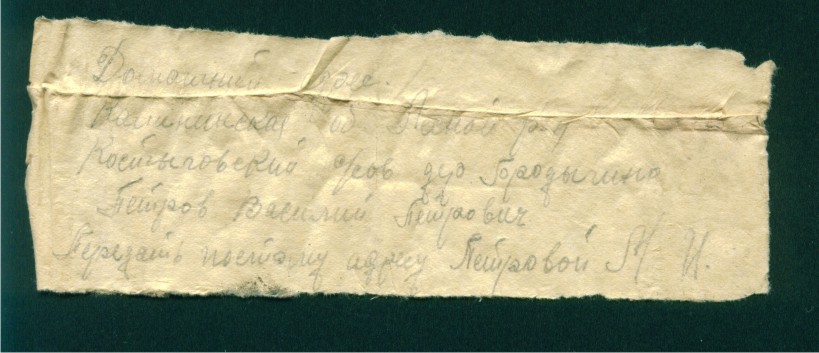 Домашний адрес.
Калининская об Лесной р-н
Костыговский с/сов д. Городыгино
Петров Василий Петрович
Передать поетому адресу Петровой М И.